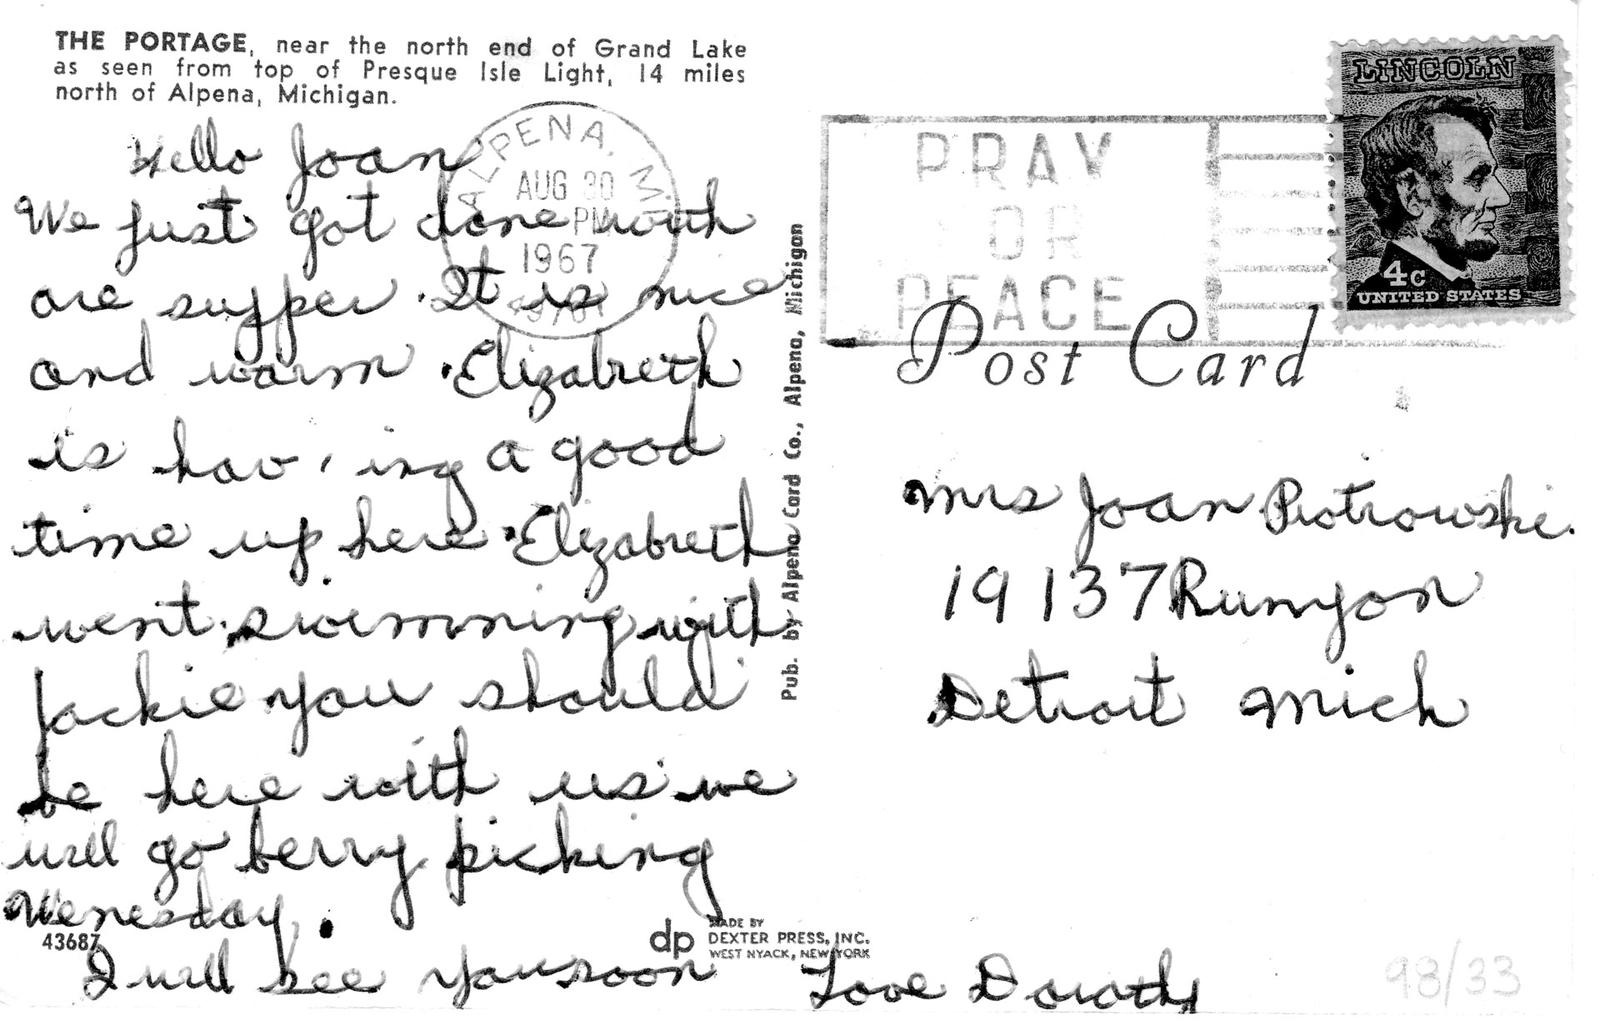 THE PORTAGE, near the north end of Grand Lake
as seen from top of Presque Isle Light, 14 miles
north of Alpena, Michigan.
Hello Joan
We just got done wouth
are supper. It is nice
and warm. Elizabreth
is hav, ing a good
time up here. Elizabreth
went swimming with
Jackie you should
be here with us we
will go berry picking
Wenesday.
I will see you soon
Love Dorothy
43687
ALPENA, M
AUG 30
PM
1967
Pub. by Alpena Card Co., Alpena, Michigan
dp
MADE BY
DEXTER PRESS, INC.
WEST NYACK, NEW YORK
PRAY
FOR
PEACE
LINCOLN
4c
UNITED STATES
Post Card
Mrs Joan Piotrowski.
19137 Runyon
Detroit Mich
98/33